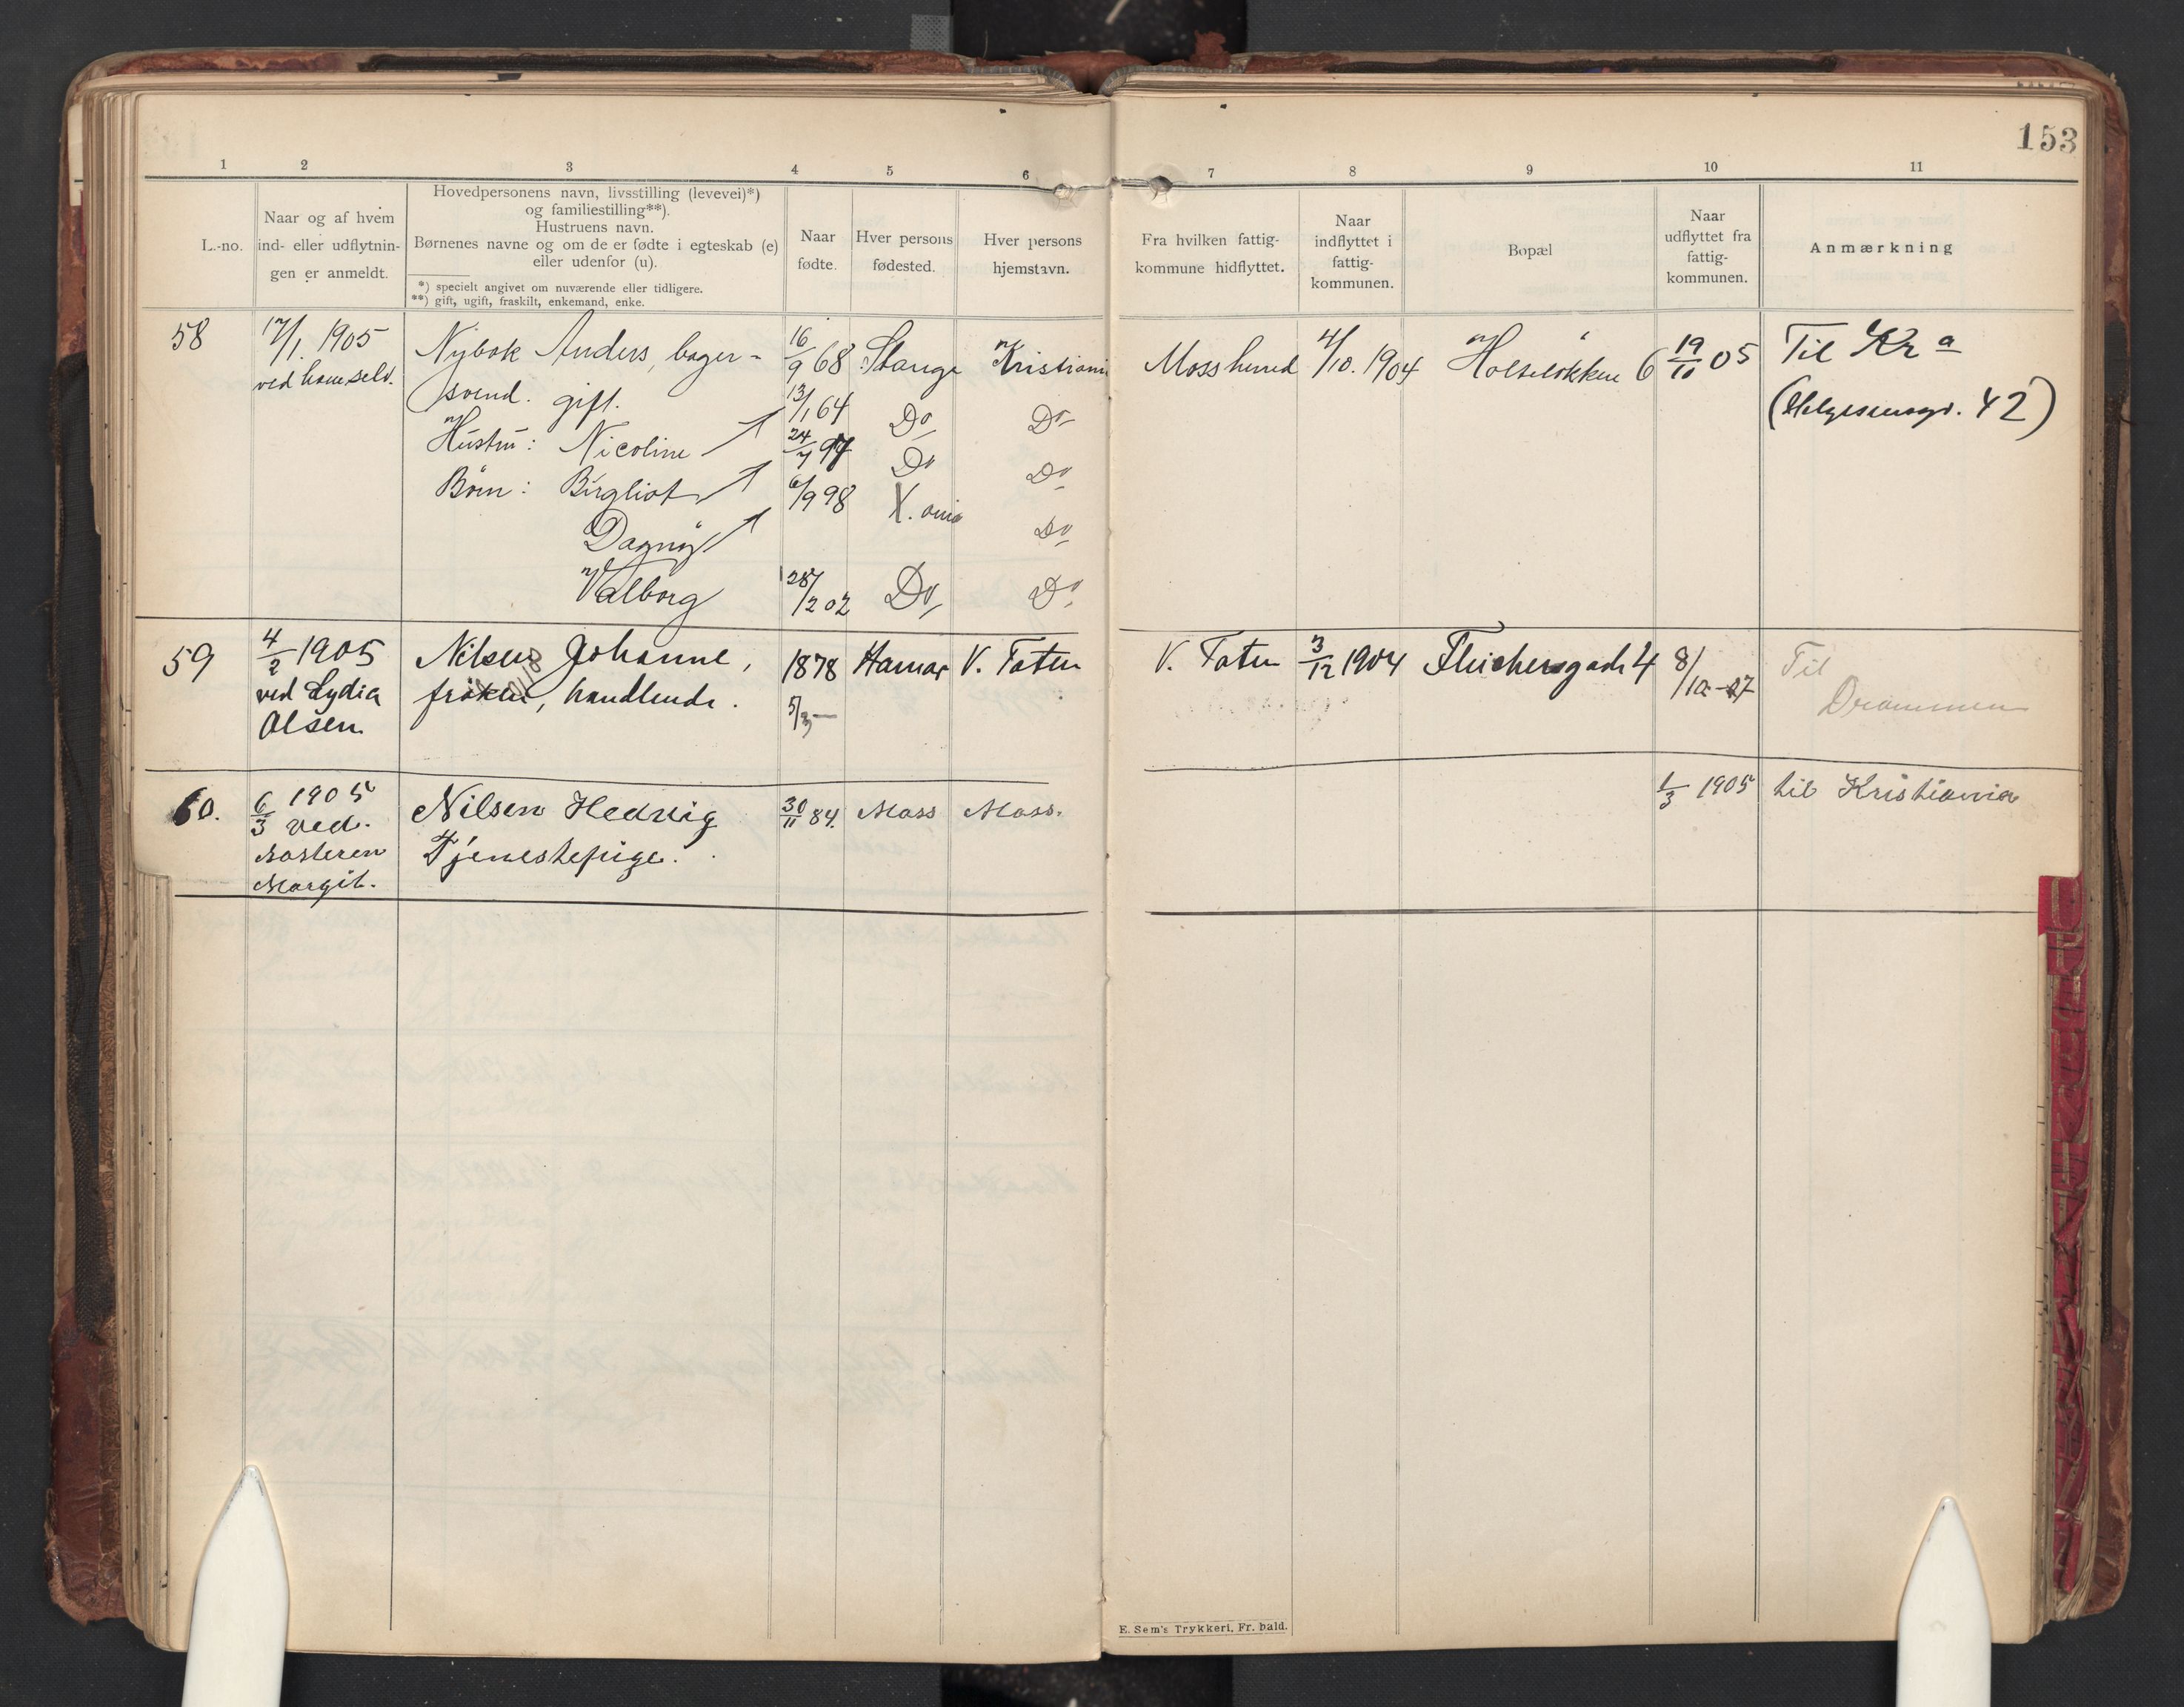 153
1 2 3 4 5 6 7 8 9 10 11
L.-no.
Naar og af hvem
ind- eller udflytnin-
gen er anmeldt.
Hovedpersonens navn, livsstilling (levevei)*)
og familiestilling**).
Hustruens navn.
Børnenes navne og om de er fødte i egteskab (e)
eller udenfor (u).
*) specielt angivet om nuværende eller tidligere.
**) gift, ugift, fraskilt, enkemand, enke.
Naar
fødte.
Hver persons
fødested.
Hver persons
hjemstavn.
Fra hvilken fattig-
kommune hidflyttet.
Naar
indflyttet i
fattig-
kommunen.
Bopæl
Naar
udflyttet fra
fattig-
kommunen.
Anmærkning
58 17/1. 1905 Nybak Anders, bager- 16/9 68 Stange Kristiania Moss herred 4/10. 1904 Holseløkken 6 19/11 05 Til Kr a
ved ham selv. svend. gift. (Helgesensgd. 42)
Hustru: Nicoline 13/1 64 Do Do
Børn: Birgliot 24/7 97 Do Do
Dagny 6/9 98 X.ania Do
Valborg 28/2 02 Do Do
59 4/2 1905 Nilsen Johanne, 1878 Hamar V. Toten V. Toten 3/12 1904 Fleichersgade 4 8/10-07 Til
ved Lydia frøken, handlende. 5/3 Drammen
Olsen
60. 6/3 1905 Nilsen Hedvig 30/11 84. Moss Moss. 1/3 1905 til Kristiania
ved. Tjenestepige.
søsteren
Margit.
E. Sem's Trykkeri, Fr. hald.